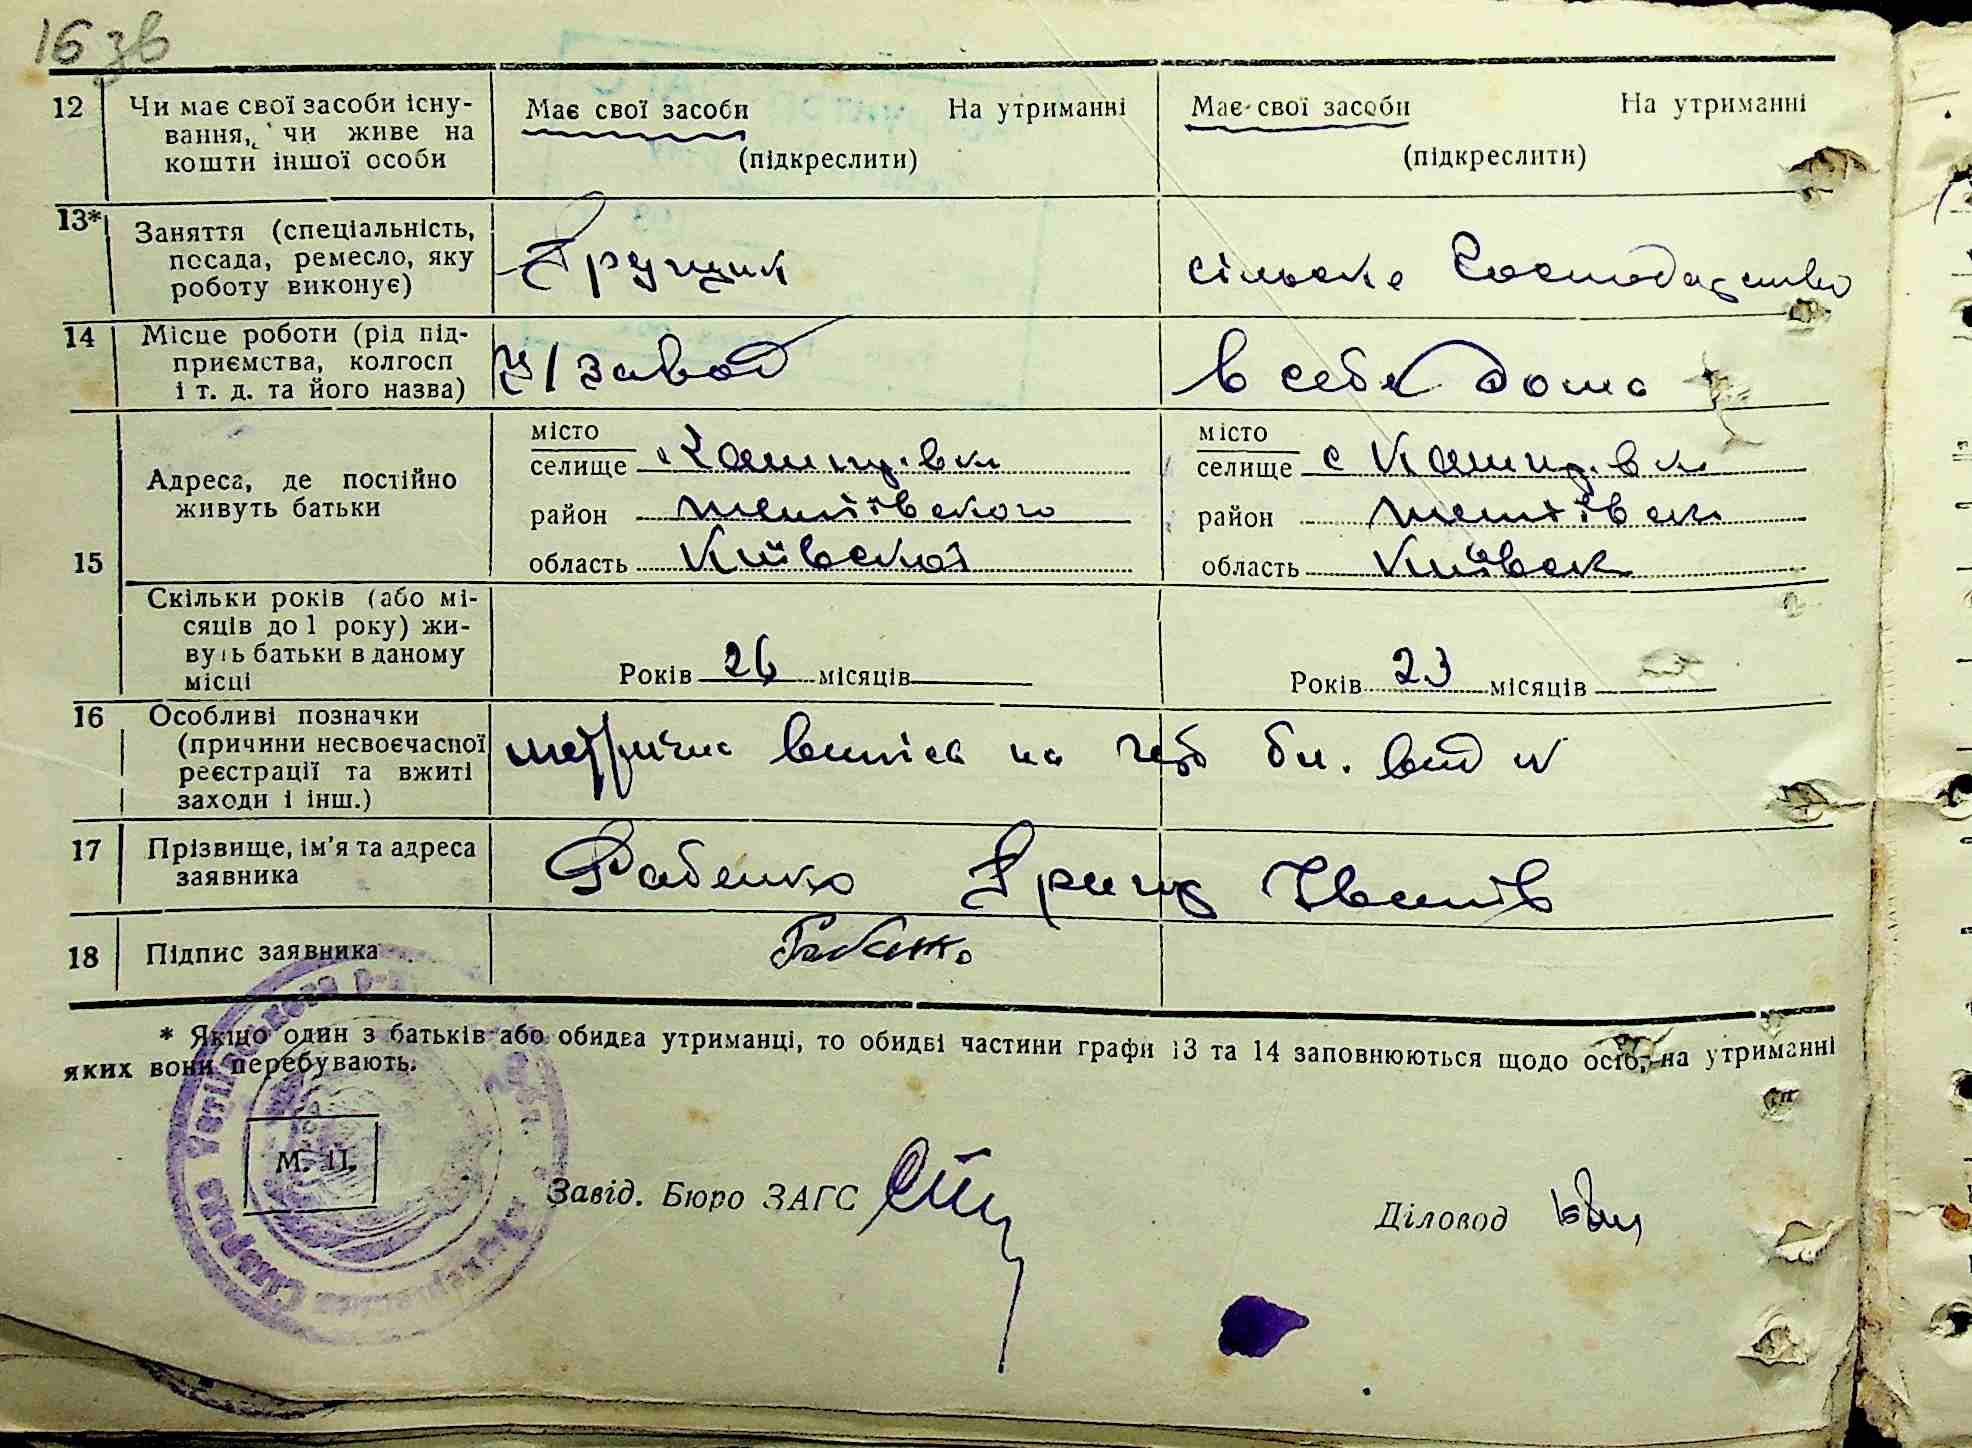 16 зв
12 Чи має свої засоби існу-
вання, чи живе на
кошти іншої особи
Має свої засоби На утриманні
(підкреслити)
Має свої засоби На утриманні
(підкреслити)
13* Заняття (спеціальність,
посада, ремесло, яку
роботу виконує)
сільске Господарство
14 Місце роботи (рід під-
приємства, колгосп
і т. д. та його назва)
ц/завод
в себе дома
15 Адреса, де постійно
живуть батьки
місто
селище с Кашперівки
район тетіївского
область Київскої
місто
селище с Кашперівки
район тетіївск
область Київск
Скільки років (або мі-
сяців до 1 року) жи-
вуть батьки в даному
місці
Років 26 місяців
Років 23 місяців
16 Особливі позначки
(причини несвоєчасної
реєстрації та вжиті
заходи і інш.)
метрична випись на
17 Прізвище, ім'я та адреса
заявника
Грицько Іванів
18 Підпис заявника
* Якщо один з батьків або обидва утриманці, то обидві частини графи 13 та 14 заповнюються щодо осіб, на утриманні
яких вони перебувають.
М. П.
Завід. Бюро ЗАГС
Діловод